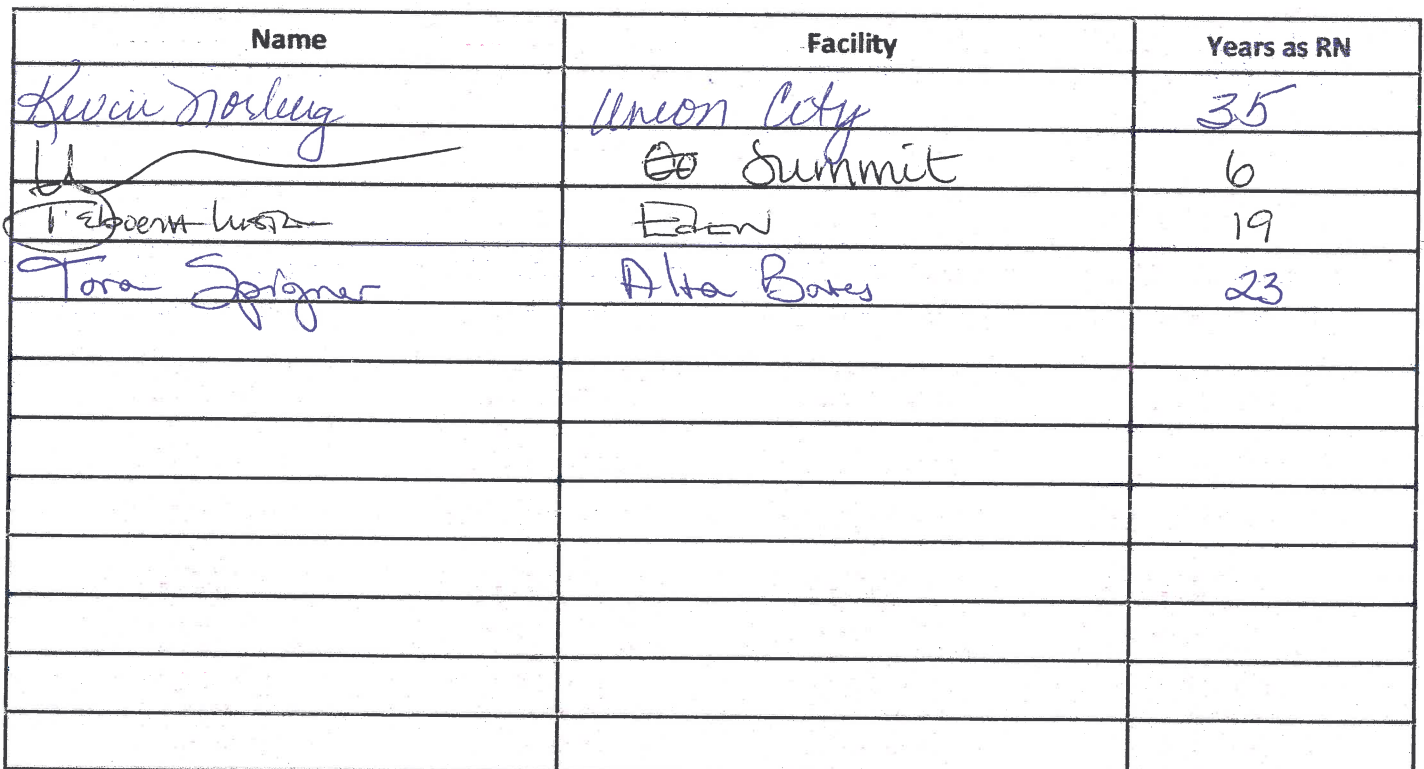 Name Facility Years as RN
Kevin Norberg Union City 35
Summit 6
Eden 19
Tora Spigner Alta Bates 23